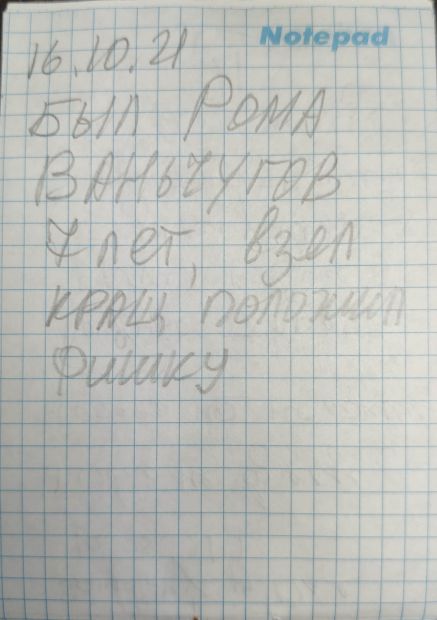 Notepad
16.10.21
БЫЛ РОМА
ВАНЬЧУГОВ
7 лет, взел
КРАЩ, положил
Фишку